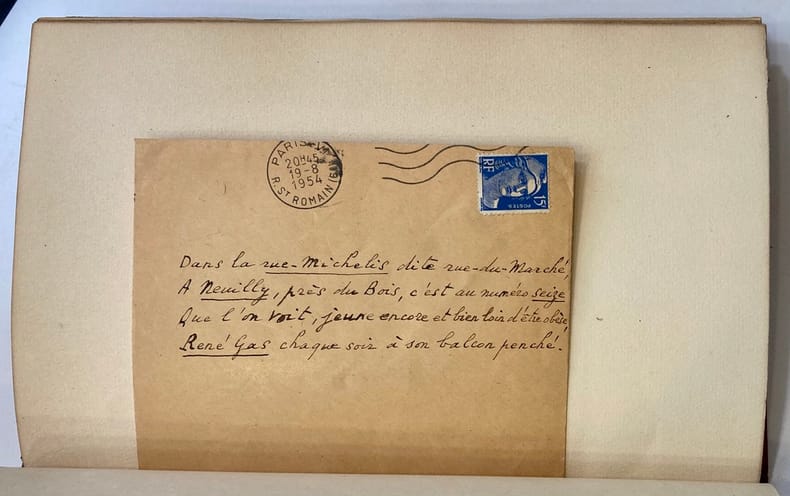 PARIS-VI
20H45
19-8
1954
R. St ROMAIN (6
RF
POSTES
15F
Dans la rue-Michelis dite rue-du-Marché,
A Neuilly, près du Bois, c'est au numéro seize
Que l'on voit, jeune encore et bien loin d'être obèse,
René Gas chaque soir à son balcon penché.